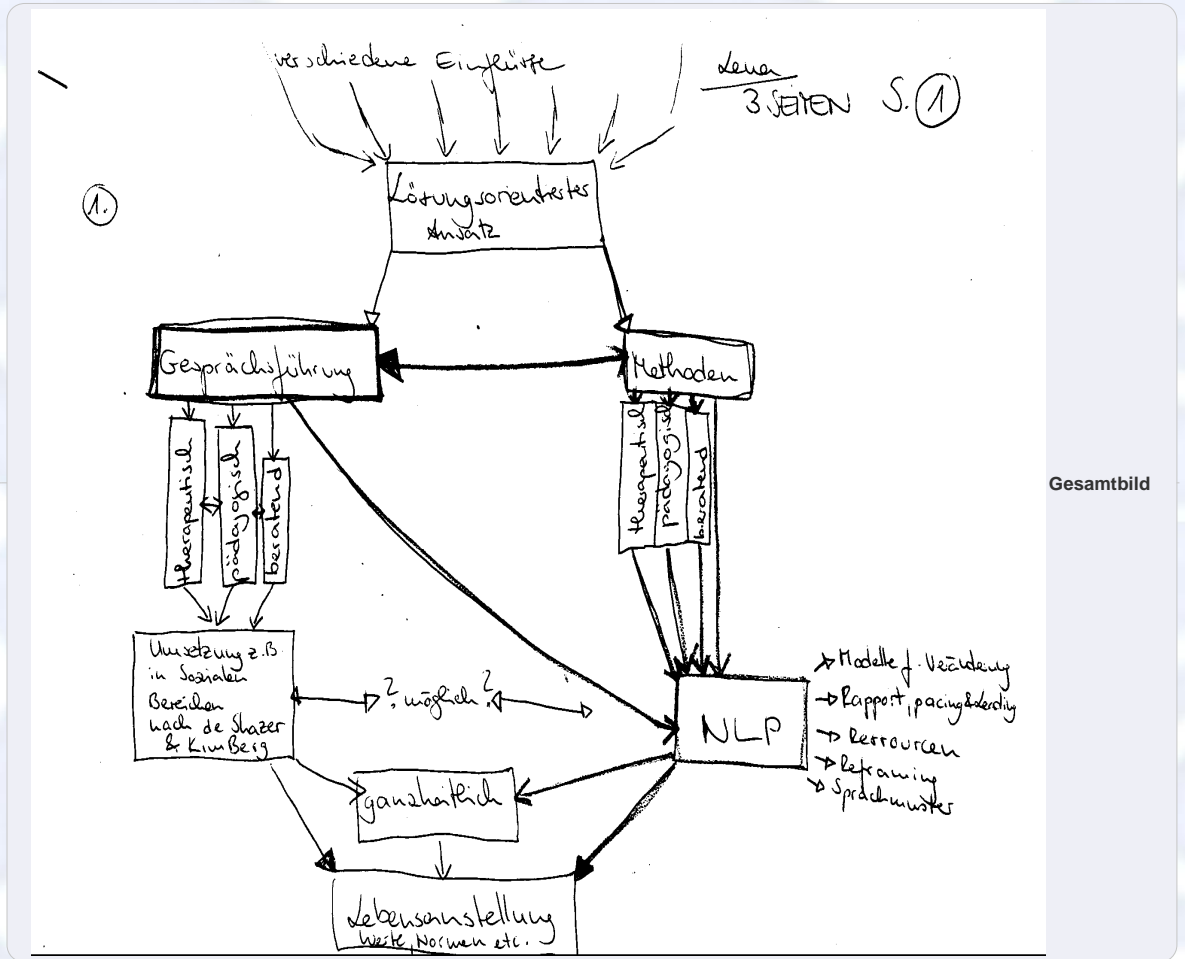 verschiedene Einflüsse
Lena
3 SEITEN S. 1
1.
Lösungsorientierter
Ansatz
Gesprächsführung
Methoden
therapeutisch
pädagogisch
beratend
therapeutisch
pädagogisch
beratend
Umsetzung z.B.
in Sozialen
Bereichen
nach de Shazer
& Kim Berg
? möglich ?
NLP
Modelle f. Veränderung
Rapport, pacing & leading
Ressourcen
Reframing
Sprachmuster
ganzheitlich
Lebenseinstellung
Werte, Normen etc.
Gesamtbild